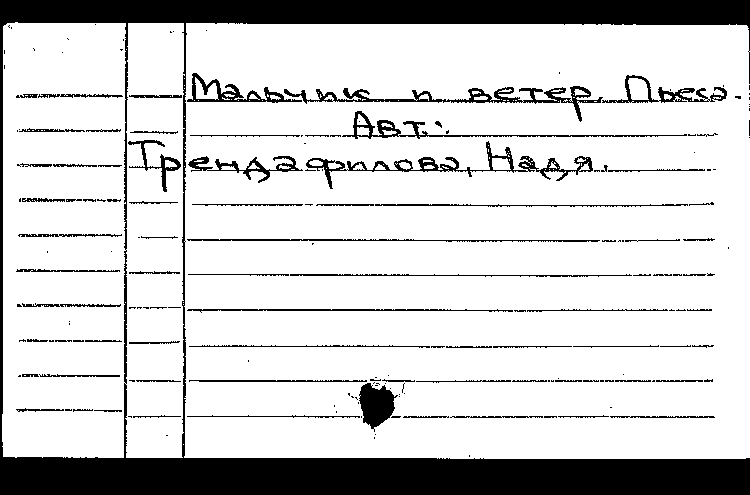 Мальчик и ветер. Пьеса.
Авт.:
Трендафилова, Надя.